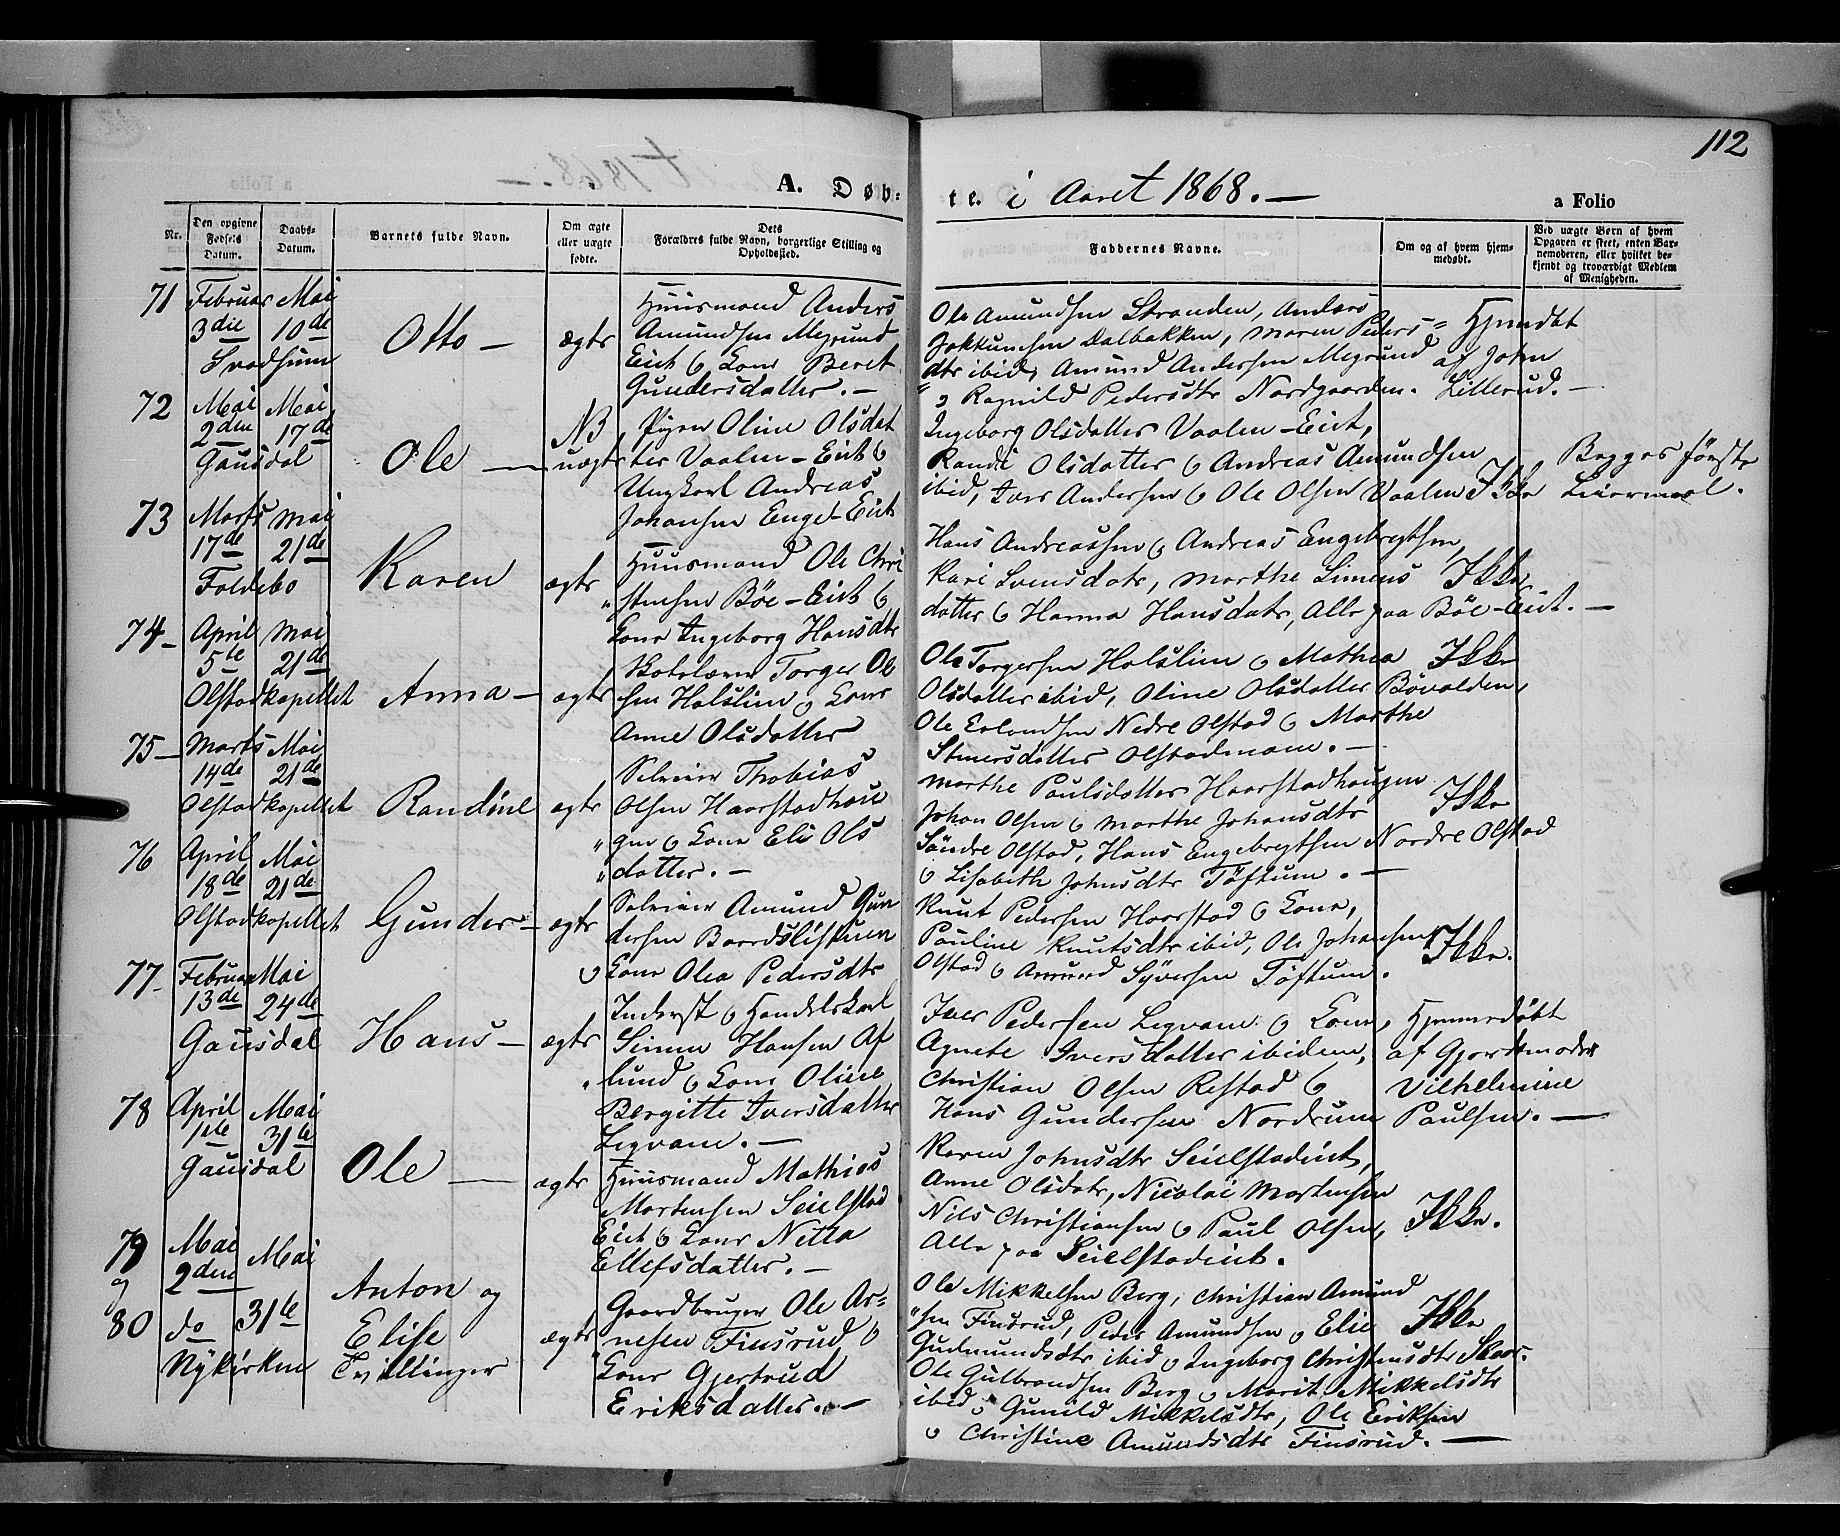 112
A. Døb=
te. i Aaret 1868. —
a Folio
Nr.
Den opgivne Fødsels Datum.
Daabs-Datum.
Barnets fulde Navn.
Om ægte eller uægte fødte.
Dets Forældres fulde Navn, borgerlige Stilling og Opholdssted.
Faddernes Navne.
Om og af hvem hjemmedøbt.
Ved uægte Børn af hvem Opgaven er skeet, enten Barnemoderen, eller hvilket bekjendt og troværdigt Medlem af Menigheden.
71
Februar 3die
Mai 10de
Otto —
ægte
Huusmand Anders
Amundsen Megrund
Eiet & Kone Beret
Gundersdatter. —
Ole Amundsen Stranden, Anders
Dalbakken, Maren Peders=
dtr ibid, Amund Andersen Megrund
& Ragnild Pedersdtr Nordgaarden.
Hjemdøbt
af John
Lillerud. —
72
Mai 2den
Mai 17de
Gausdal
Ole —
NB
uægte
Pigen Oline Olsdat
ter Vaalen-Eiet &
Ungkarl Andreas
Johansen Enget-Eiet
Ingeborg Olsdatter Vaalen-Eiet,
Randi Olsdatter & Andreas Amundsen
ibid, Iver Andersen & Ole Olsen Vaalen
Ikke
Begges første
Leiermaal.
73
Marts 17de
Mai 21de
Follebo
Karen
ægte
Huusmand Ole Chri
stensen Böe-Eiet &
Kone Ingeborg Hansdtr
Hans Andreassen & Andreas Engebregtsen,
Kari Svensdatr, Marthe Simens
datter & Hanna Hansdatr, Alle paa Böe-Eiet. —
Ikke
74 —
April 5te
Mai 21de
Olstadkapellet
Anna —
ægte
Torger Ol
sen Holslien & Kone
Anne Olsdatter
Ole Torgersen Holslien & Mathea
Olsdatter ibid, Oline Olsdatter Bövolden,
Ole Erlandsen Nedre Olstad & Marthe
Steuersdatter Olstadmoen. —
Ikke
75 —
Marts 14de
Mai 21de
Olstadkapellet
Randine
ægte
Selveier Thobias
Olsen Haarstadhou
gen & Kone Eli Ols
datter. —
Marthe Paulsdatter Haarstadhaugen
Johan Olsen & Marthe Johansdtr
Söndre Olstad, Hans Engebregtsen Nordre Olstad
& Lisabeth Johnsdtr Töftum. —
Ikke
76
April 18de
Mai 21de
Olstadkapellet
Gunder —
ægte
Selveier Amund Gun
dersen Baardslistuen
& Kone Olea Pedersdtr
Knut Pedersen Haarstad & Kone,
Pauline Knutsdtr ibid, Ole Johansen
Olstad & Amund Syversen Töftum.
Ikke.
77
Februar 13de
Mai 24de
Gausdal
Hans —
ægte
Inderst & Handelskarl
Simen Hansen Af
lund & Kone Oline
Bergitte Iversdatter
Legvam. —
Iver Pedersen Legvam & Kone,
Agnete Iversdatter ibidem,
Christian Olsen Restad &
Hans Gundersen Nordrum
Hjemmedøbt
af Gjordemoder
Vilhelmine
Paulsen. —
78
April 1ste
Mai 31te
Gausdal
Ole —
ægte
Huusmand Mathias
Mortensen Seielstad
Eiet & Kone Netta
Ellefsdatter. —
Karen Johnsdtr Seielstadeiet,
Anne Olsdatr, Nicolai Mortensen
Nils Christiansen & Paul Olsen,
Alle paa Seielstadeiet.
Ikke.
79
og
80
Mai 2den
do
Mai 31te
Nykirken
Anton og
Elise
Tvillinger
ægte
Gaardbruger Ole Ar=
nesen Finsrud &
Kone Gjertrud
Eriksdatter. —
Ole Mikkelsen Berg, Christian Amund
sen Finsrud, Peder Amundsen & Elie
Gudmundsdtr ibid & Ingeborg Christensdtr
Ole Gulbrandsen Berg & Marit Mikkelsdtr
ibid & Gunild Mikkelsdtr, Ole Eriksen
& Christine Amundsdtr Finsrud. —
Ikke